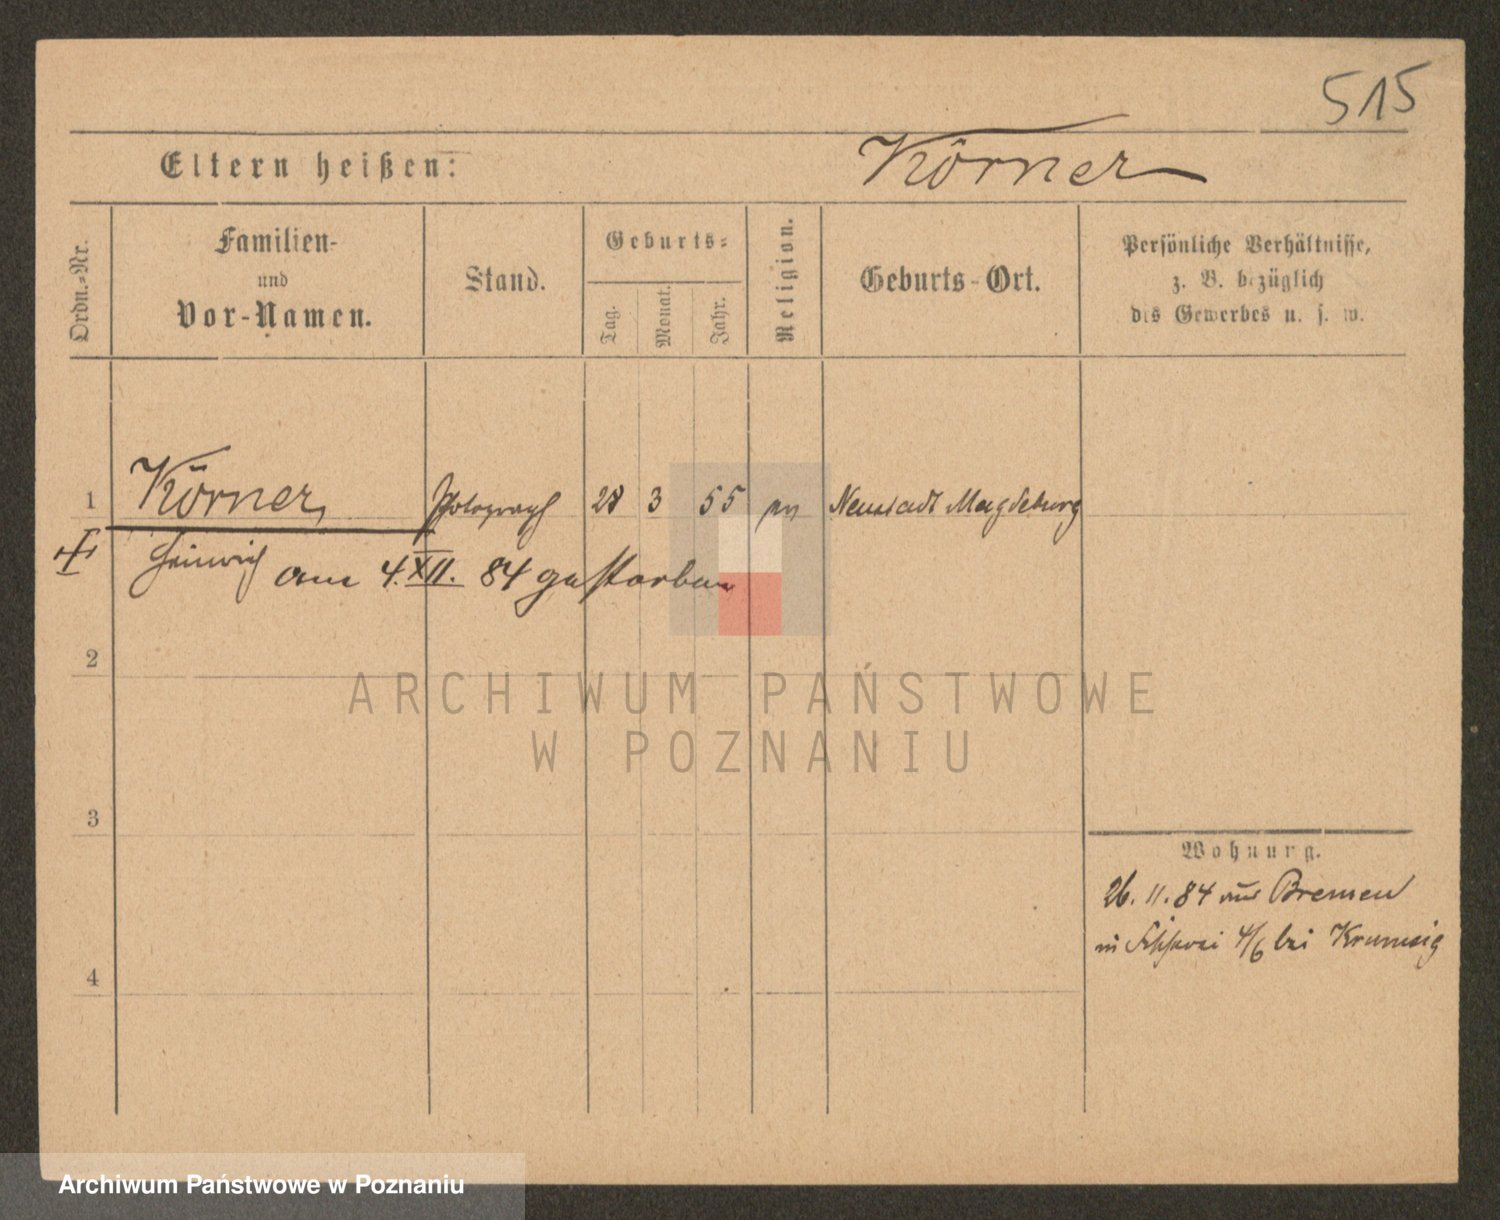 515
Eltern heißen:
Körner
Ordn.-Nr.
Familien-
und
Vor-Namen.
Stand.
Geburts-
Tag.
Monat.
Jahr.
Religion.
Geburts-Ort.
Persönliche Verhältnisse,
z. B. bezüglich
des Gewerbes u. s. w.
1
Körner, Photograph 28 3 55 Neustadt Magdeburg
Heinrich am 4. XII. 84 gestorben
2
3
4
Wohnung.
26. 11. 84 aus Bremen
in 4/6 bei
ARCHIWUM PAŃSTWOWE
W POZNANIU
Archiwum Państwowe w Poznaniu